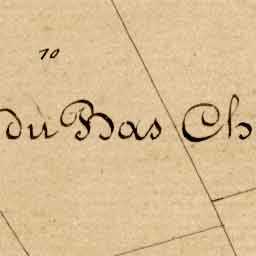 70
du Bas Ch